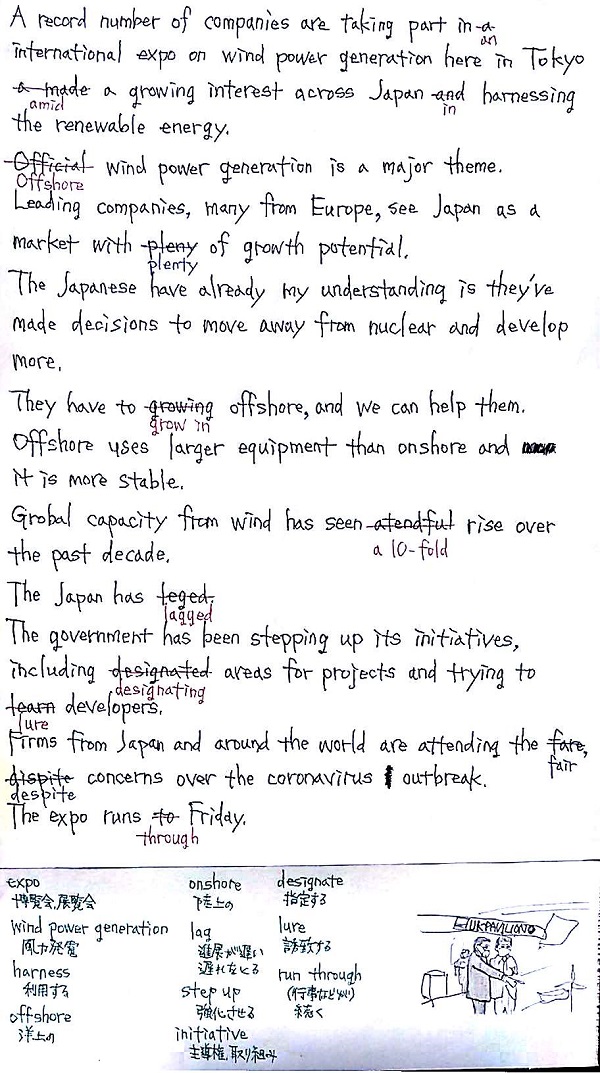 A record number of companies are taking part in a
an
international expo on wind power generation here in Tokyo
a made a growing interest across Japan and harnessing
amid in
the renewable energy.
Official wind power generation is a major theme.
Offshore
Leading companies, many from Europe, see Japan as a
market with pleny of growth potential.
plenty
The Japanese have already my understanding is they've
made decisions to move away from nuclear and develop
more.
They have to growing offshore, and we can help them.
grow in
Offshore uses larger equipment than onshore and
it is more stable.
Grobal capacity from wind has seen atendful rise over
a 10-fold
the past decade.
The Japan has teged.
lagged
The government has been stepping up its initiatives,
including designated areas for projects and trying to
designating
tearn developers.
lure
Firms from Japan and around the world are attending the fare,
fair
dispite concerns over the coronavirus outbreak.
despite
The expo runs to Friday.
through
expo
博覧会,展覧会
wind power generation
風力発電
harness
利用する
offshore
洋上の
onshore
陸上の
lag
進展が遅い
遅れをとる
step up
強化させる
initiative
主導権,取り組み
designate
指定する
lure
誘致する
run through
(行事などが)
続く
UK PAVILION